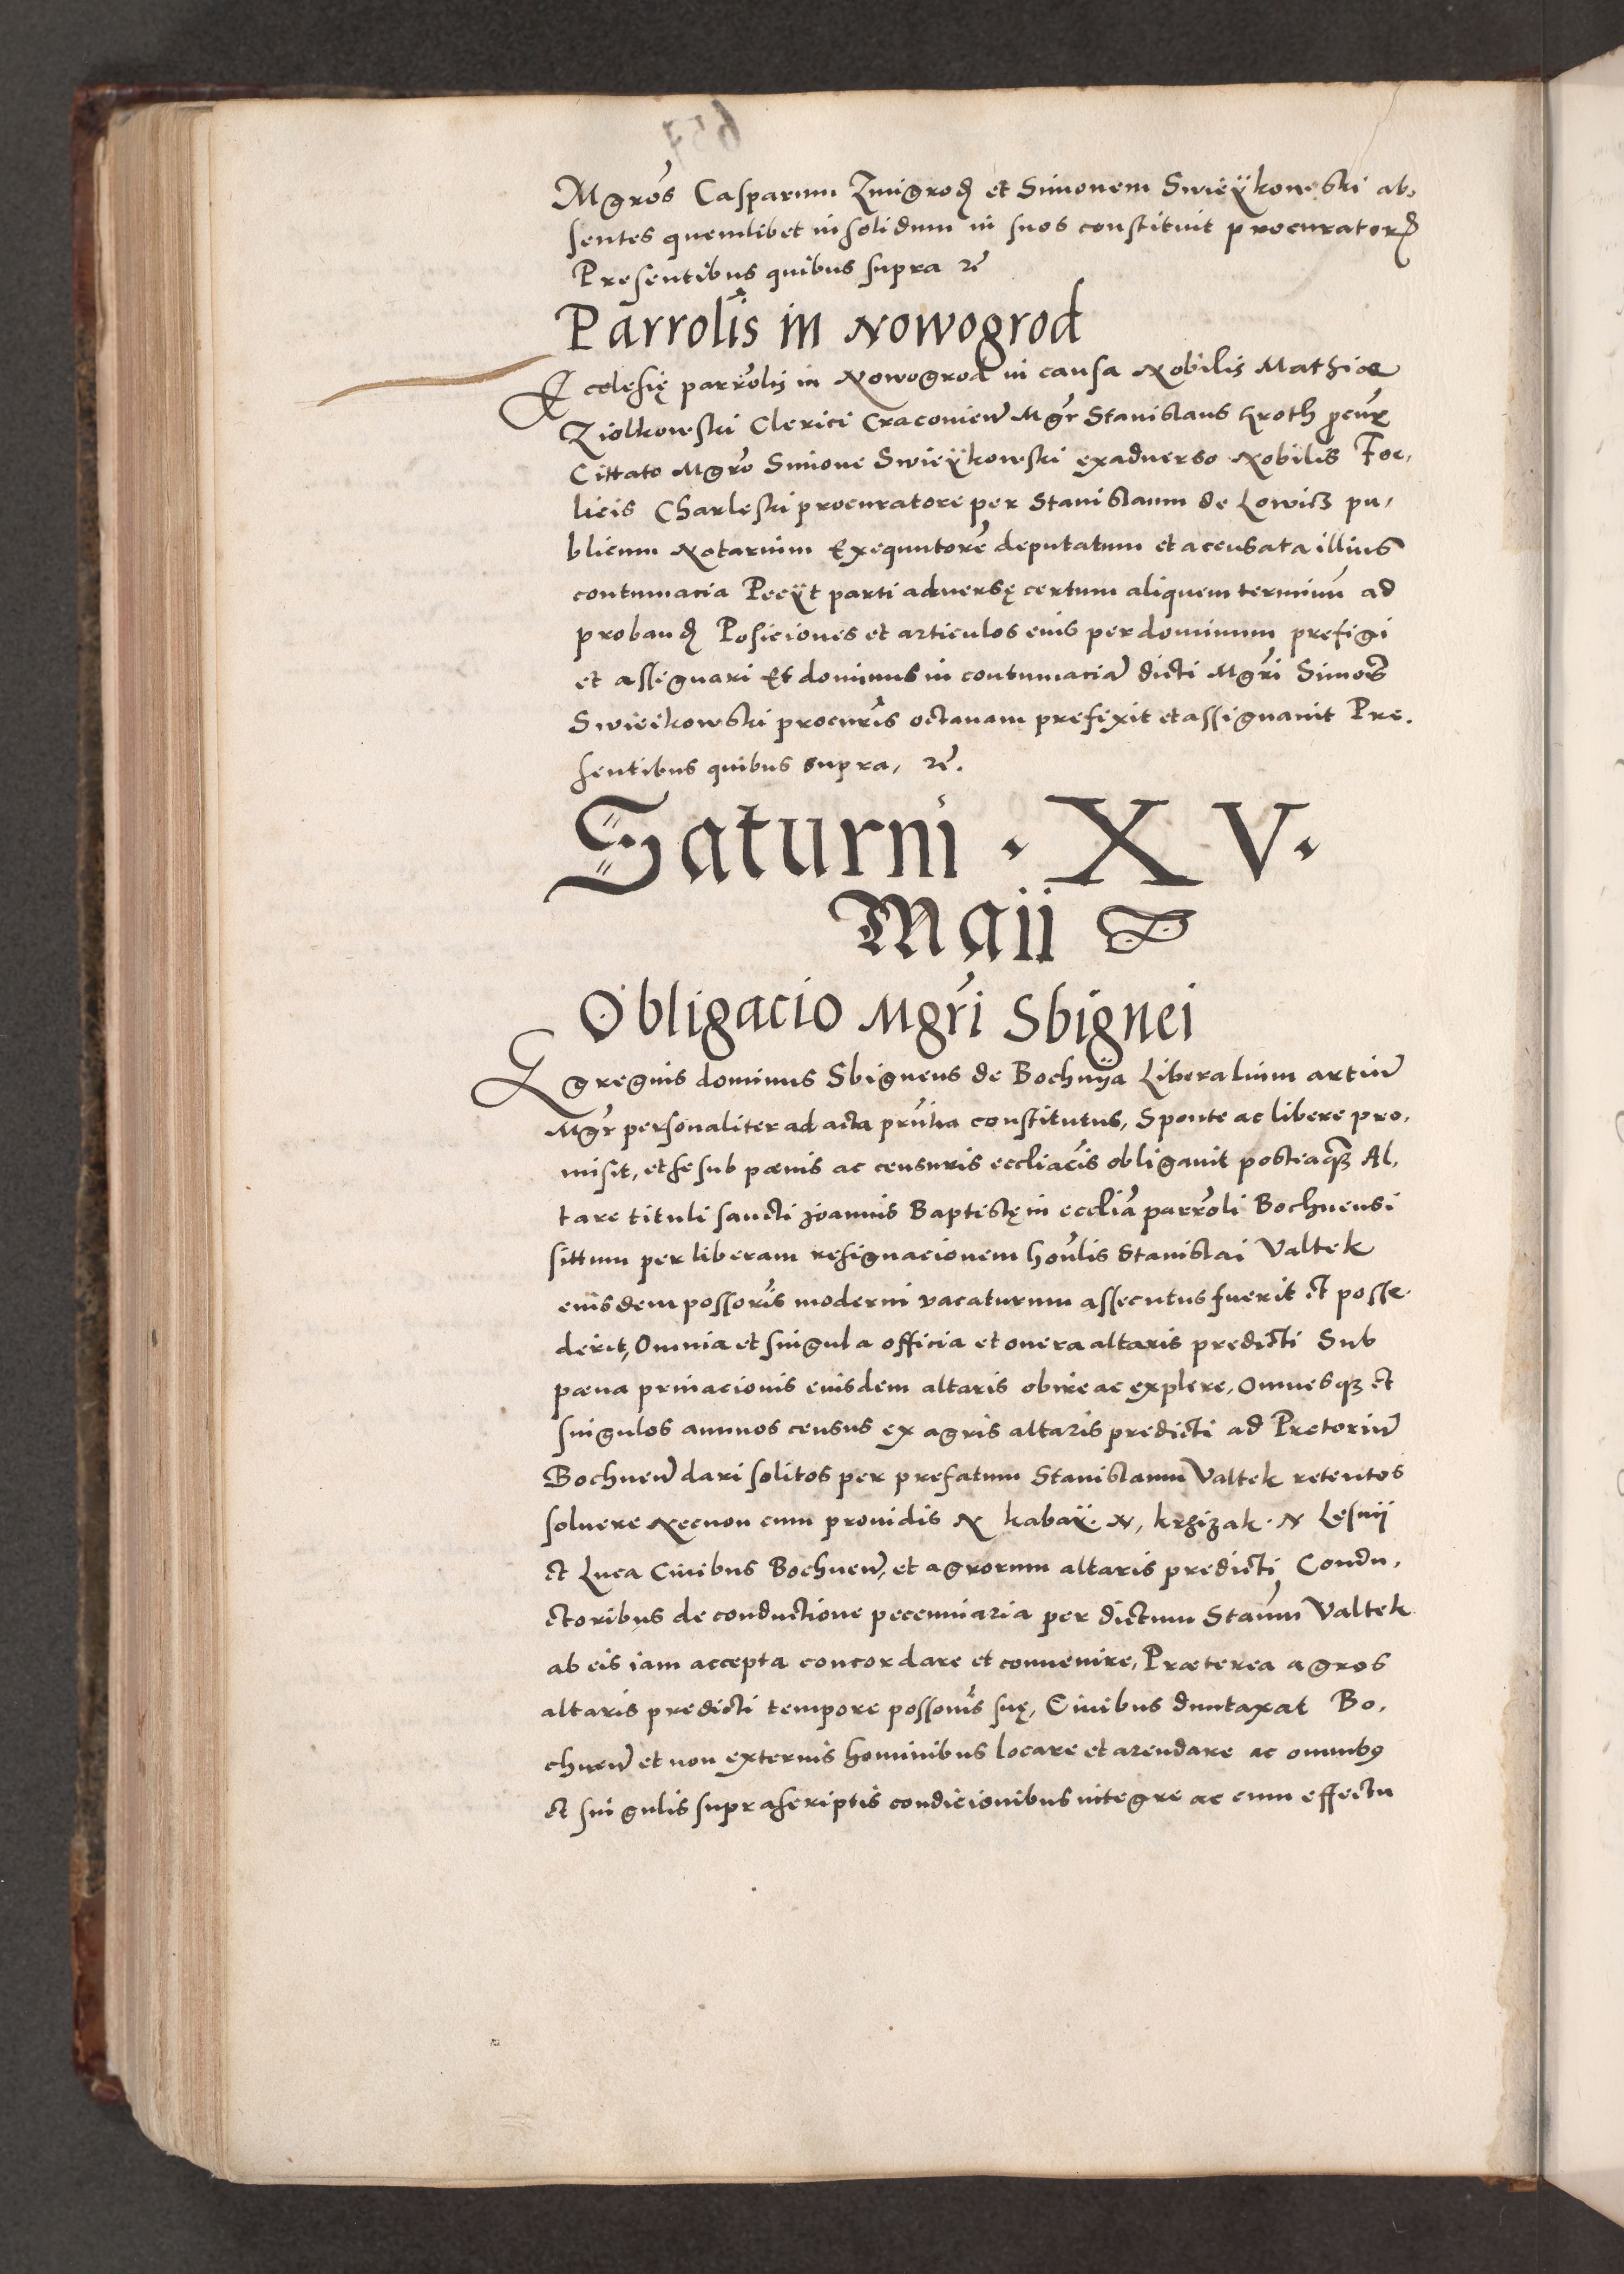 Mgros Casparum Zmigrod et Simonem Swieÿkowski ab,
sentes quemlibet in solidum in suos constituit procurator
Presentibus quibus supra rc
Parrolis in Nowogrod
Ecclesię parrolis in Nowogrod in causa Nobilis Mathiæ
Ziolkowski Clerici Craconien Mgr Stanislaus Groth procur
Cittato Mgro Simone Swieÿkowski exaduerso Nobilis Foe,
licis Charleski procuratore per Stanislaum de Lowicz pu,
blicum Notarium Exequutorem deputatum et accusata illius
contumacia Peeÿt parti aduersę certum aliquem terminum ad
proband Posiciones et articulos eius per dominum prefigi
et assignari Et dominus in contumaciam dicti Mgri Simonis
Swieikowski procuris octauam prefixit et assignauit Pre.
sentibus quibus supra, rc.
Saturni · XV.
Maii
Obligacio Mgri Sbignei
Egregius dominus Sbigneus de Bochnÿa Liberalium artium
Mgr personaliter ad acta prntia constitutus, Sponte ac libere pro,
misit, et se sub pænis ac censuris eccliacis obligauit posteaq Al,
tare tituli sancti Joannis Baptistę in ecclia parroli Bochnensi
sittum per liberam resignacionem honlis Stanislai Valtek
eiusdem possoris moderni vacaturum assecutus fuerit et posse.
derit, Omnia et singula officia et onera altaris predicti Sub
pæna priuacionis eiusdem altaris obire ac explere, Omnesq et
singulos annuos census ex agris altaris predicti ad Pretorium
Bochnen dari solitos per prefatum Stanislaum Valtek retentos
soluere Necnon cum prouidis N kabaÿ. N, krzizak. N Lesnij
et Luca Ciuibus Bochnen, et agrorum altaris predicti Condu,
ctoribus de conductione pecenniaria per dictum Staum Valtek
ab eis iam accepta concordare et conuenire, Præterea agros
altaris predicti tempore possonis suę, Ciuibus duntaxat Bo,
chnen et non externis hominibus locare et arendare ac omnibq
et singulis suprascriptis condicionibus integre ac cum effectu